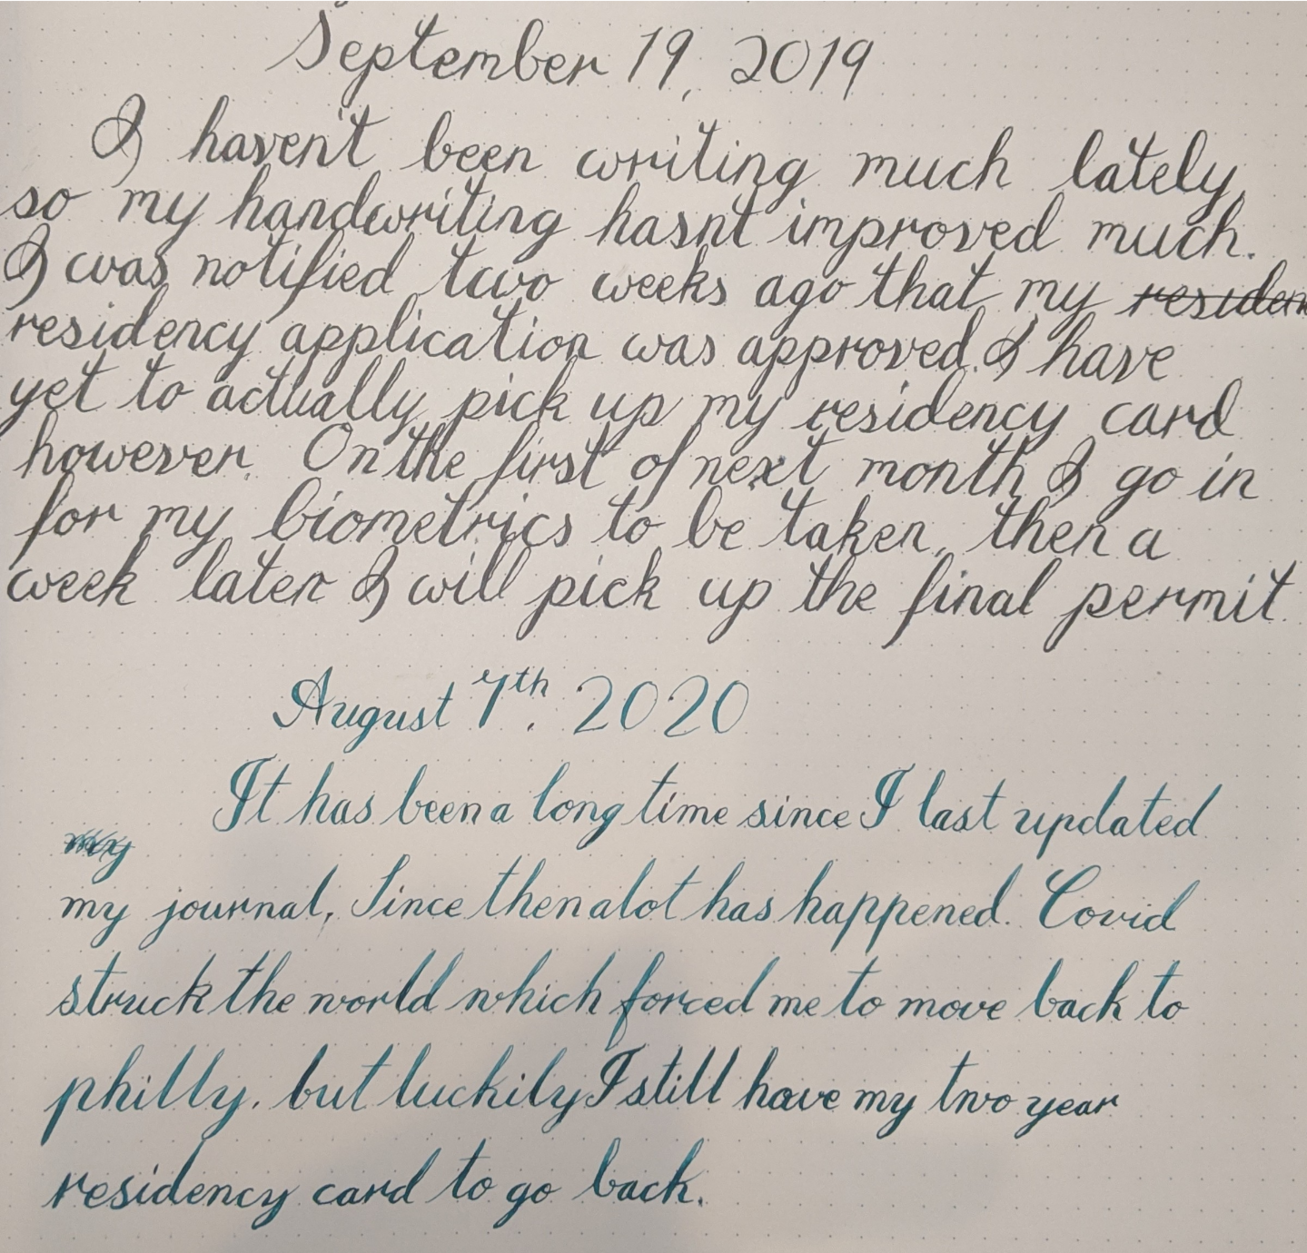 September 19, 2019
I haven't been writing much lately,
so my handwriting hasnt improved much.
I was notified two weeks ago that my residen
residency application was approved. I have
yet to actually pick up my residency card
however. On the first of next month I go in
for my biometrics to be taken, then a
week later I will pick up the final permit.
August 7th, 2020
It has been a long time since I last updated
my
my journal, Since then alot has happened. Covid
struck the world which forced me to move back to
philly, but luckily I still have my two year
residency card to go back.